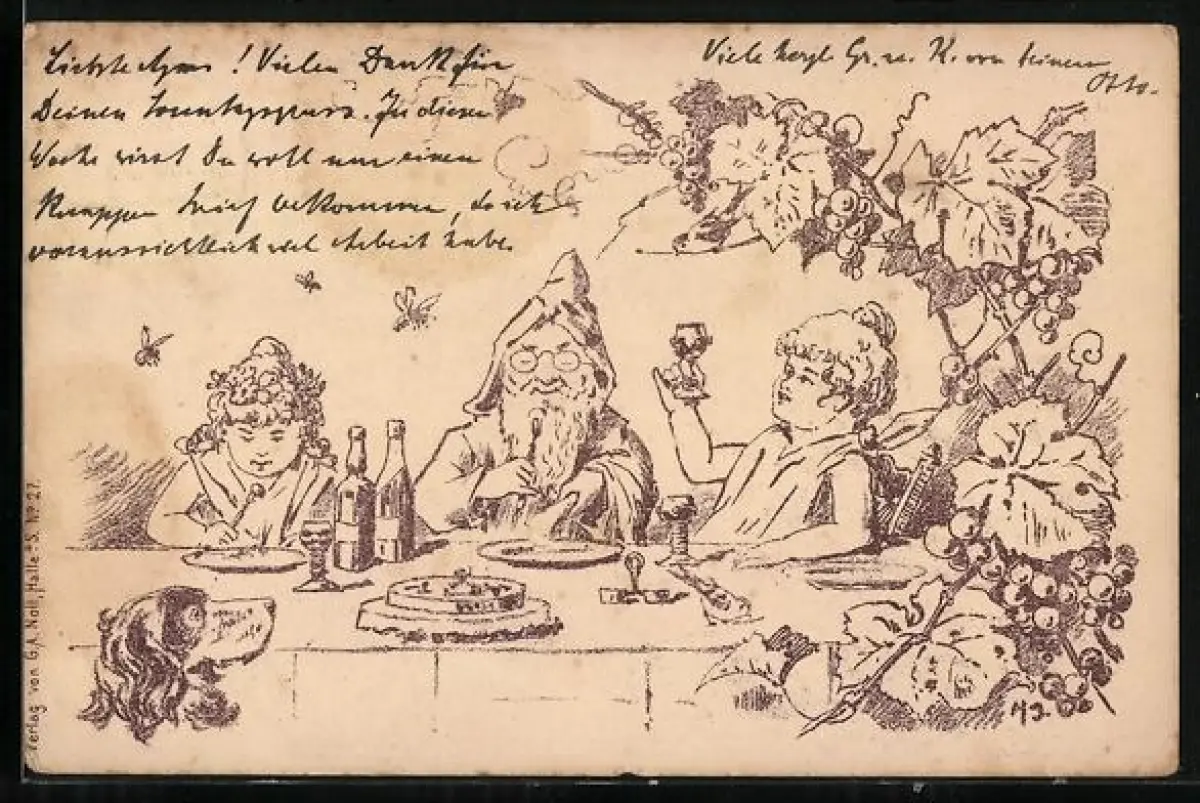 Liebste Agnes! Vielen Dank für
Deinen Sonntagsgruss. In dieser
Woche wirst Du wohl nur einen
Knappen Brief bekommen, da ich
voraussichtlich viel Arbeit habe.
Viele herzl. Gr. u. K. von Deinem
Otto.
Verlag von G. A. Noll, Halle a. S. No. 27.